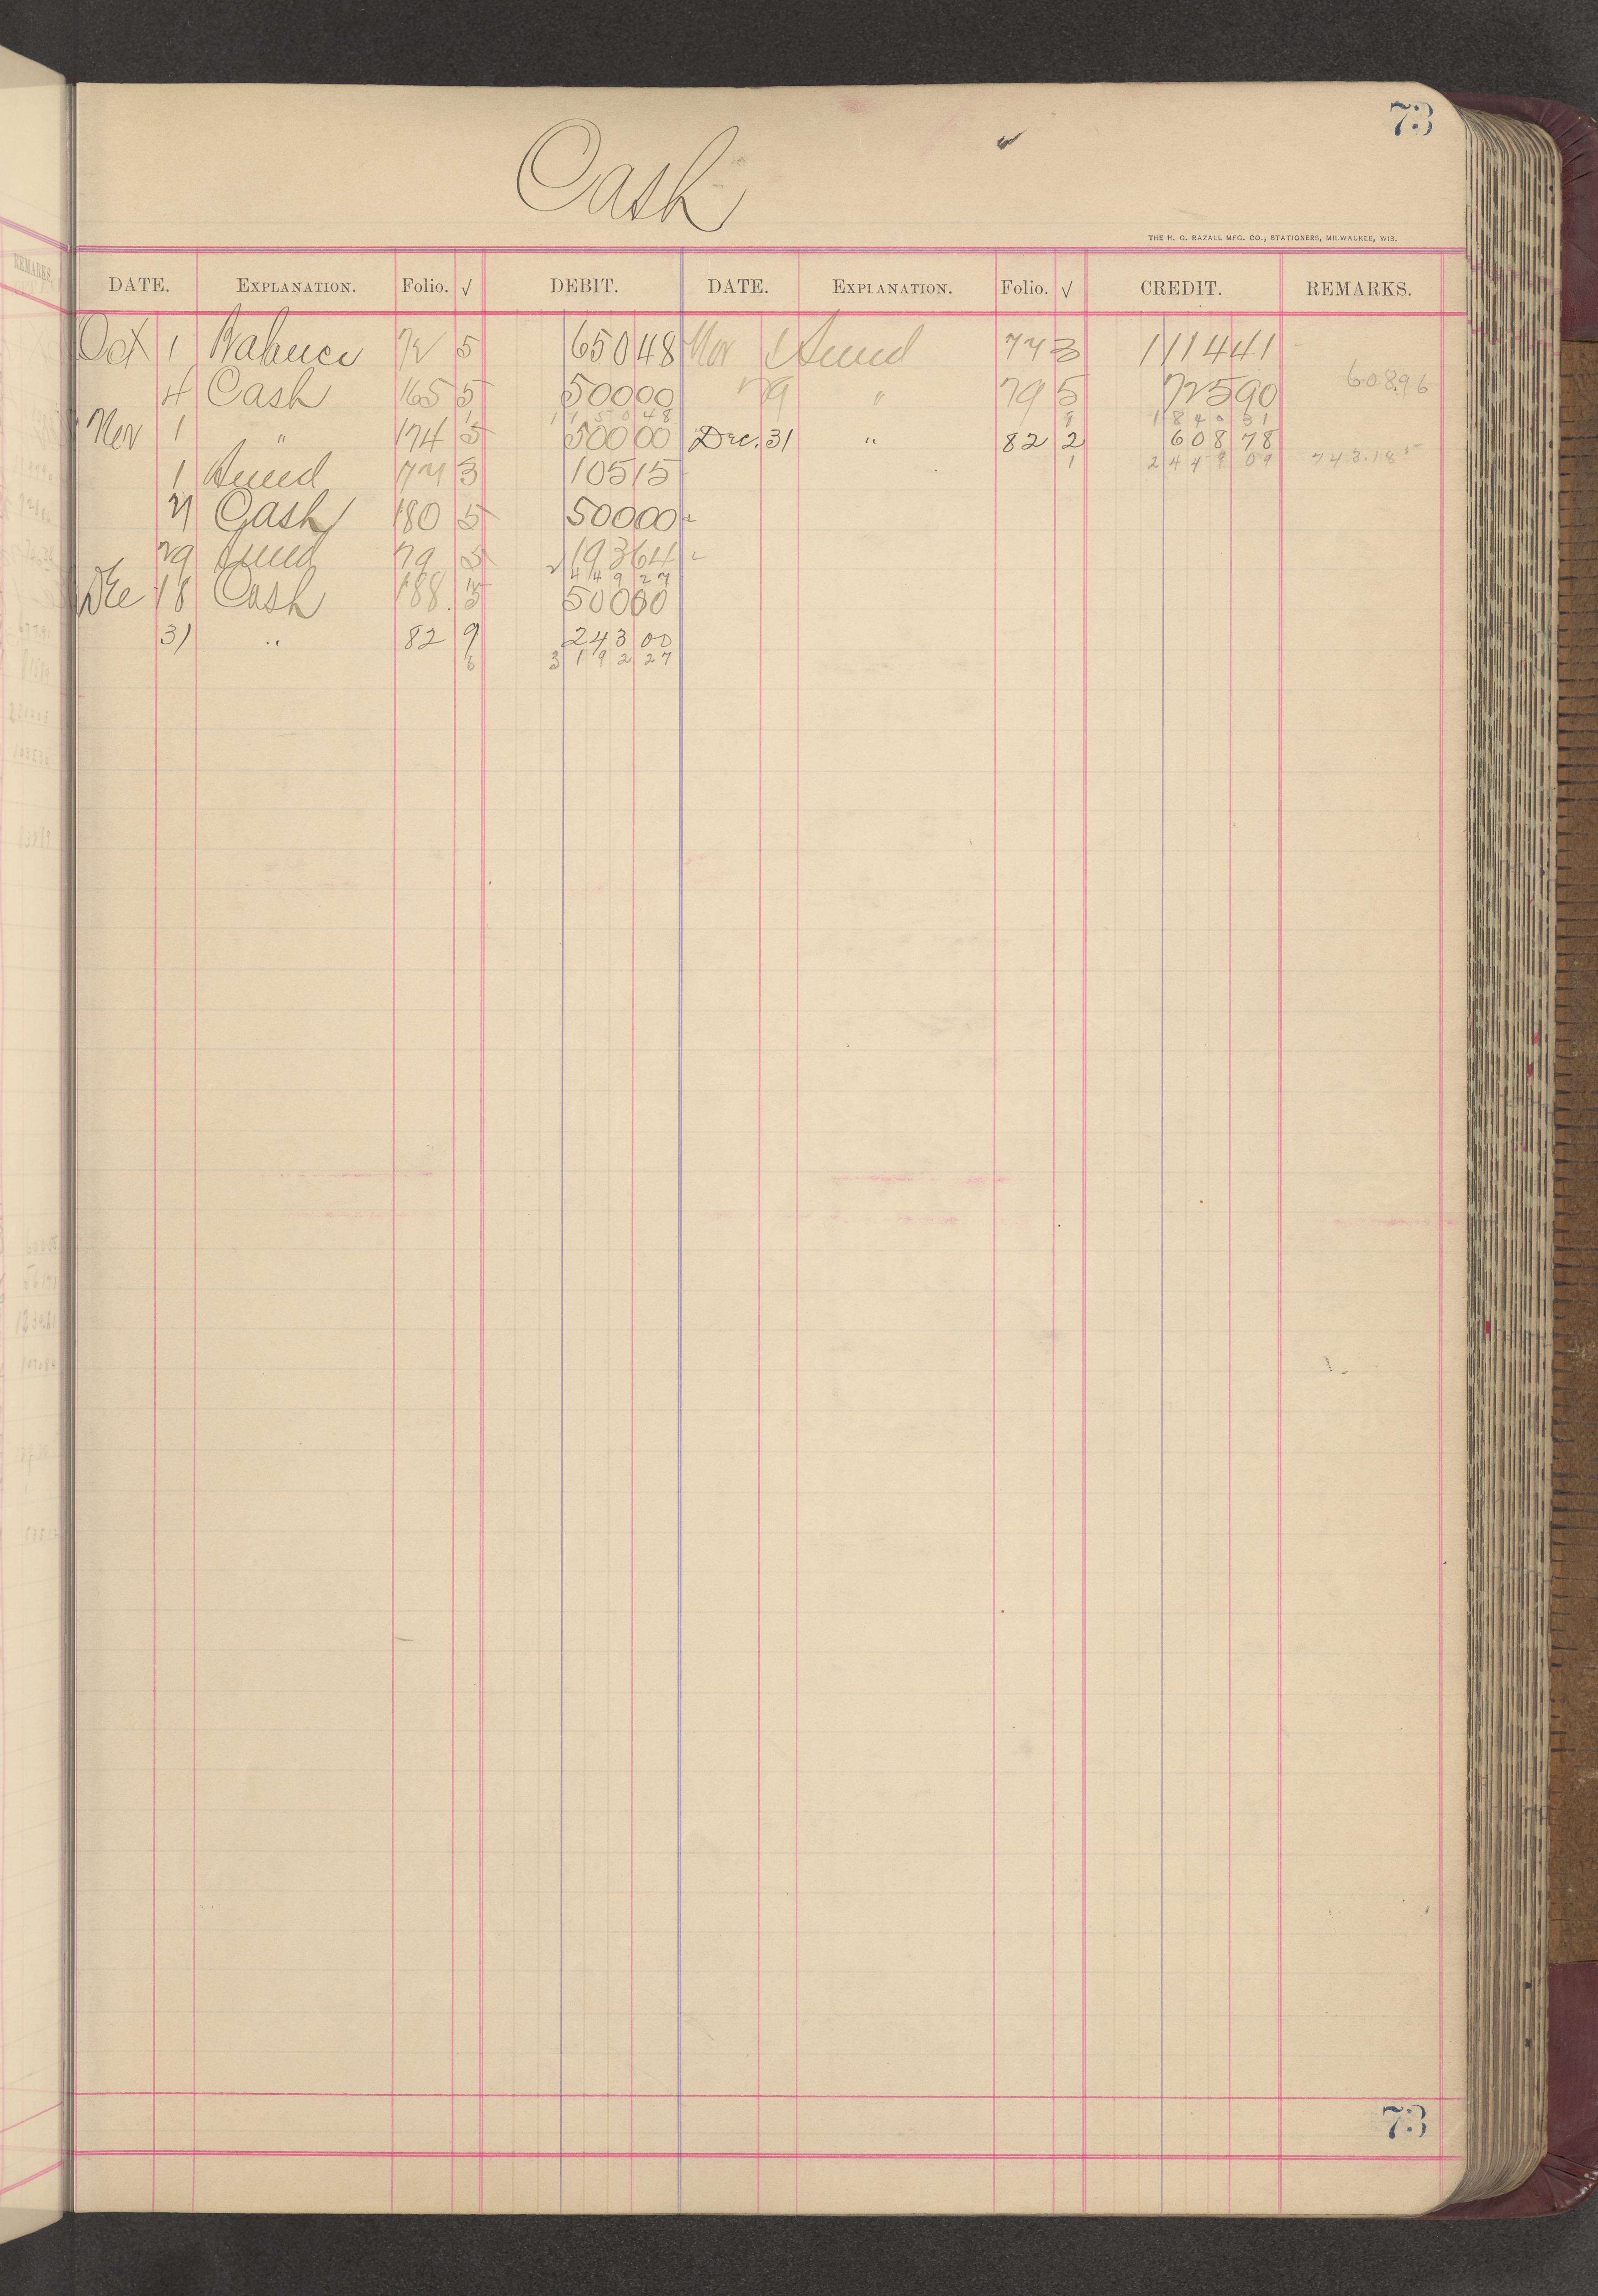 73
Cash
THE H. G. RAZALL MFG. CO., STATIONERS, MILWAUKEE, WIS.
DATE. EXPLANATION. Folio. √ DEBIT. DATE. EXPLANATION. Folio. √ CREDIT. REMARKS.
Oct 1 Balance 72 5 650 48 Nov 1 77 3 1114 41
4 Cash 165 5 500 00 29 " 79 5 725 90 608.96
1 1150 48 8 1840 31
Nov 1 " 174 5 500 00 Dec. 31 " 82 2 608 78
1 2449 09 743.18
1 77 3 105 15
21 Cash 180 5 500 00
29 79 5 193 64
2449 27
Dec 18 Cash 188 5 500 00
31 " 82 9 243 00
6 3192 27
73